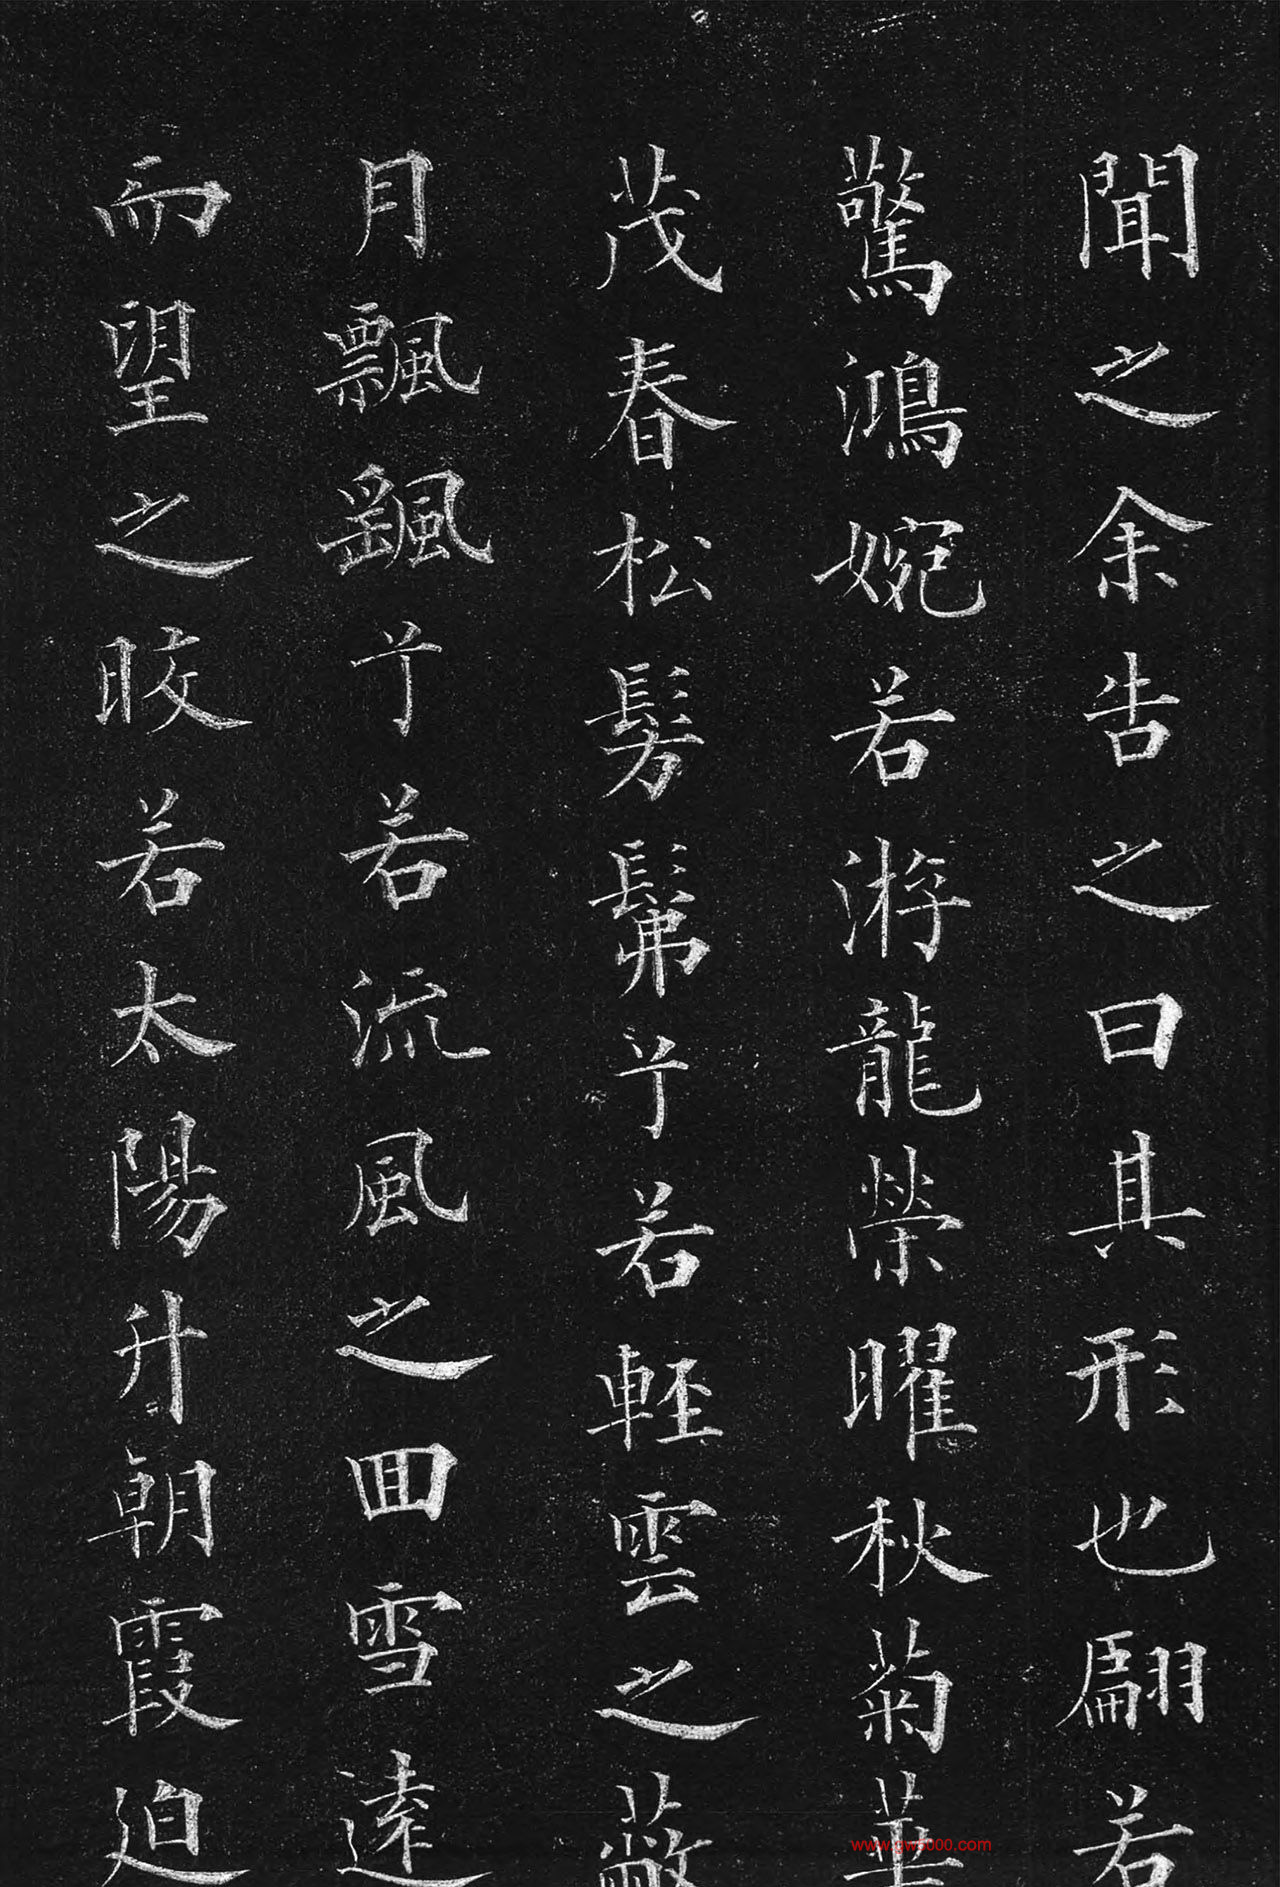 聞之余告之曰其形也翩若
驚鴻婉若游龍榮曜秋菊華
茂春松髣髴兮若輕雲之蔽
月飄颻兮若流風之回雪遠
而望之皎若太陽升朝霞迫
www.gw5000.com